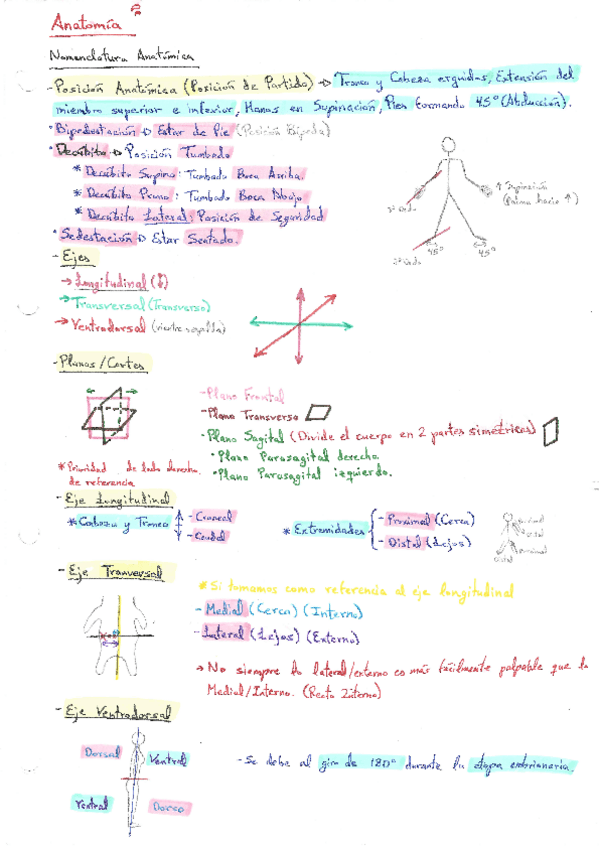 Anatomía
Nomenclatura Anatómica
- Posición Anatómica (Posición de Partido) → Tronco y Cabeza erguidas, Extensión del
miembro superior e inferior, Manos en Supinación, Pies formando 45° (Abducción).
· Bipedestación → Estar de Pie (Posición Bípeda)
· Decúbito → Posición Tumbado
* Decúbito Supino: Tumbado Boca Arriba.
* Decúbito Prono: Tumbado Boca Abajo
* Decúbito Lateral: Posición de Seguridad
· Sedestación → Estar Sentado.
↑ Supinación
(palma hacia ↑)
45° 45°
- Ejes
→ Longitudinal (↕)
→ Transversal (Transverso)
→ Ventrodorsal (vientre-espalda)
- Planos/Cortes
- Plano Frontal
- Plano Transverso
- Plano Sagital (Divide el cuerpo en 2 partes simétricas)
· Plano Parasagital derecho.
· Plano Parasagital izquierdo.
* Prioridad de lado derecho
de referencia.
- Eje Longitudinal
* Cabeza y Tronco
- Craneal
- Caudal
* Extremidades
- Proximal (Cerca)
- Distal (Lejos)
- Eje Tranversal
* Si tomamos como referencia al eje longitudinal
- Medial (Cerca) (Interno)
- Lateral (Lejos) (Externo)
→ No siempre lo lateral/externo es más fácilmente palpable que lo
Medial/Interno. (Recto Interno)
- Eje Ventrodorsal
Dorsal Ventral
Ventral Dorso
- Se debe al giro de 180° durante la etapa embrionaria.